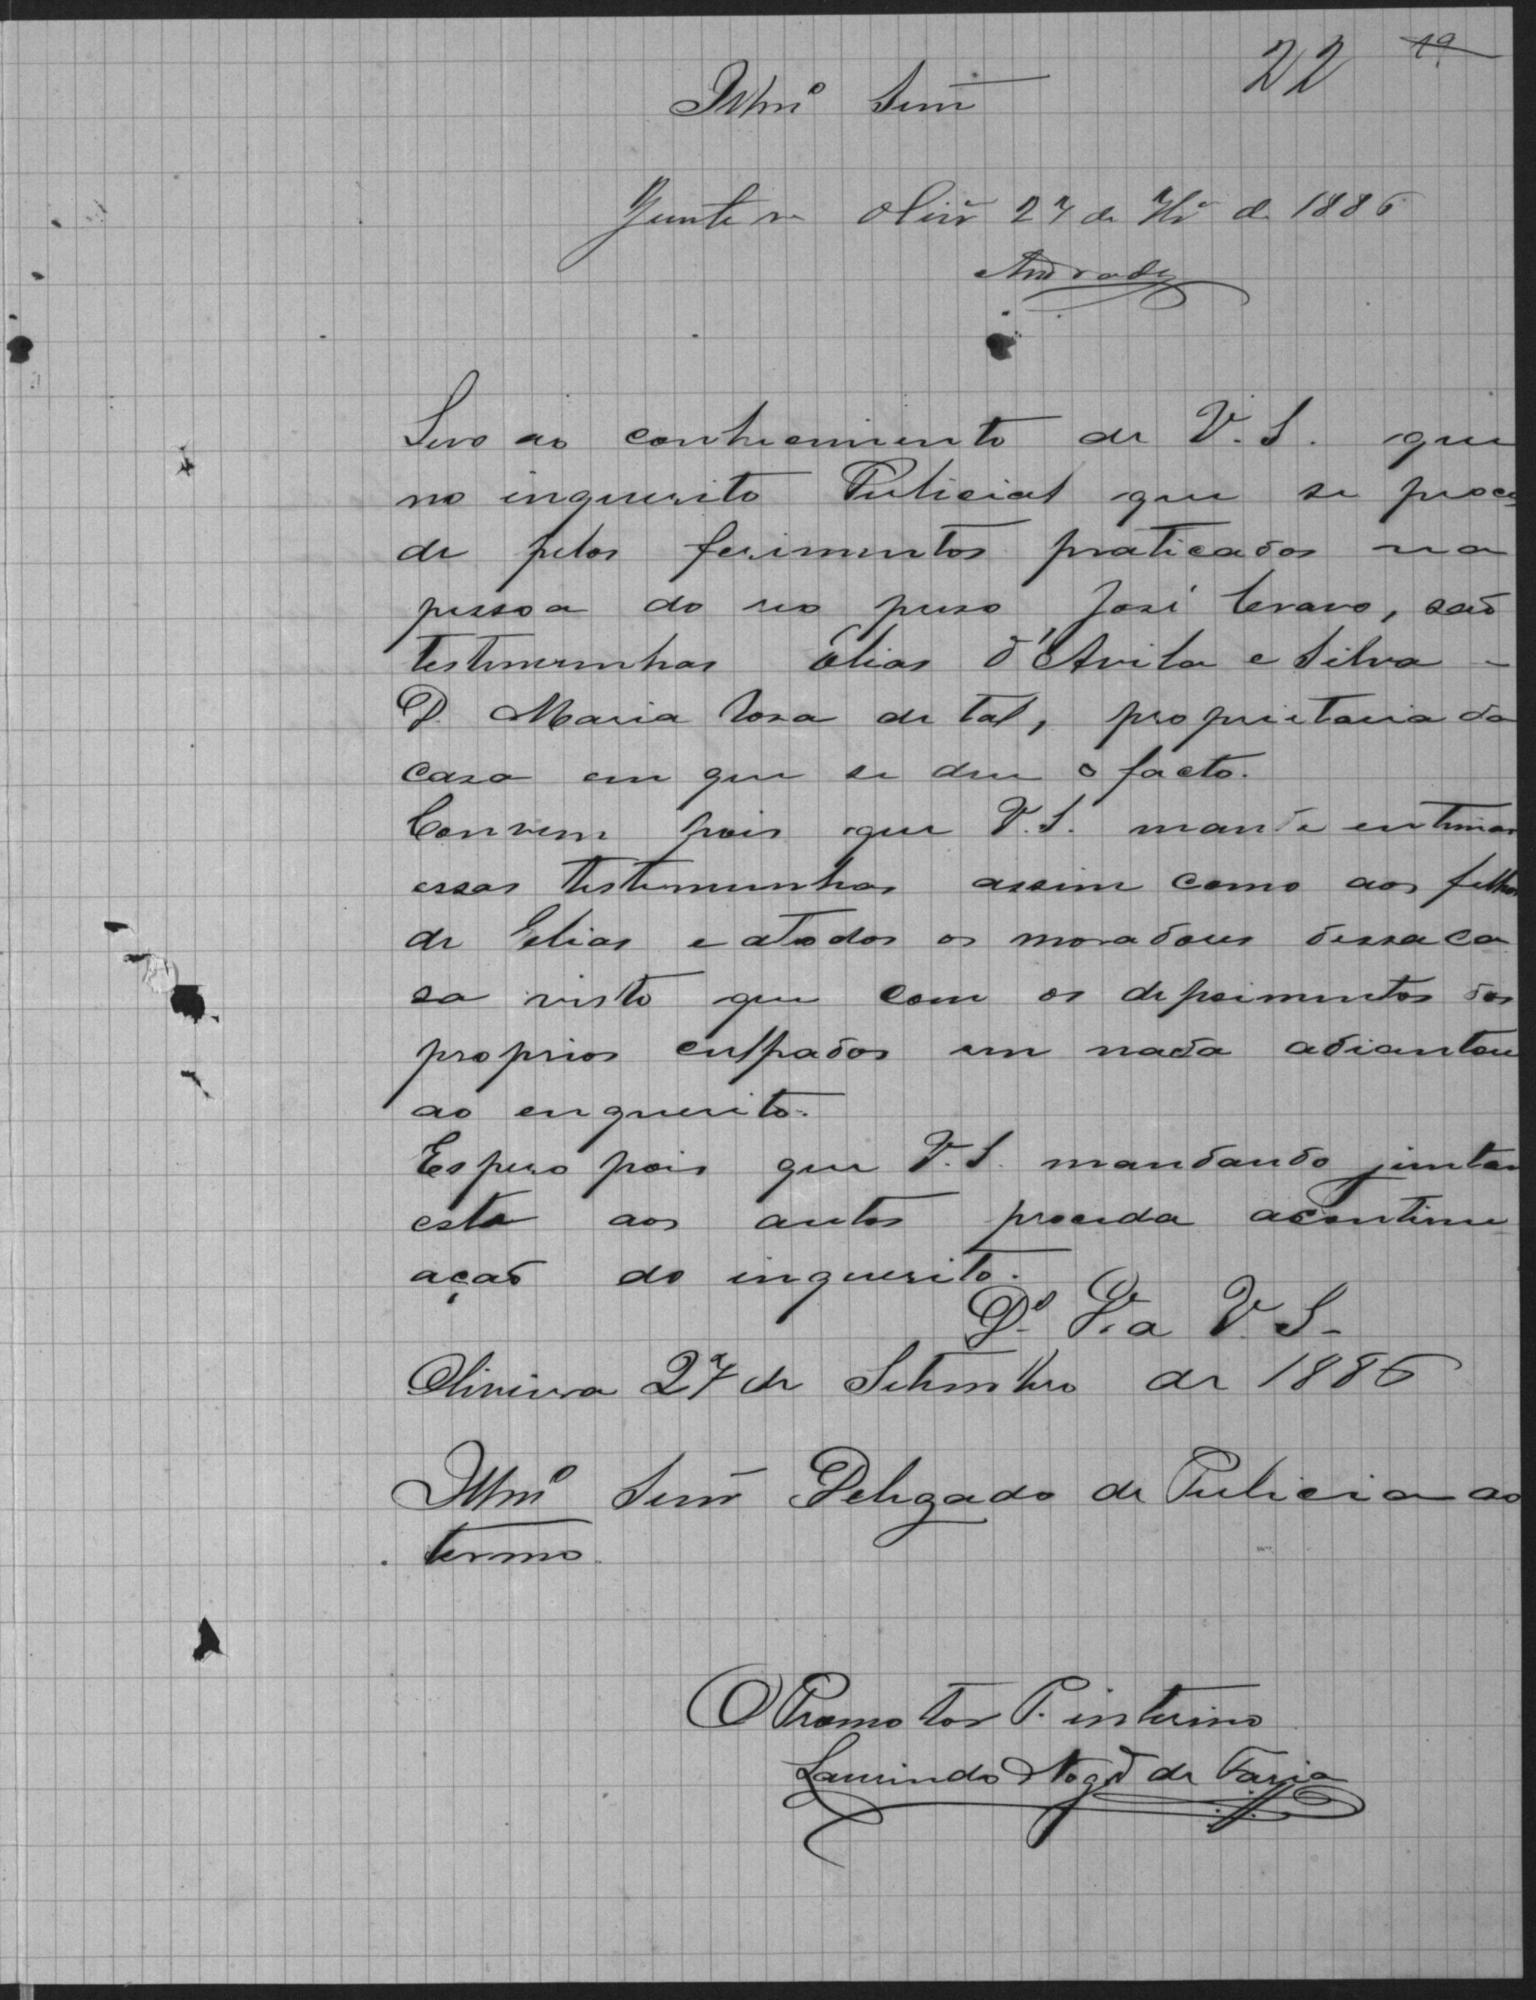 22 19
Illmº Senr
Junte se Olivrª 27 de 7brº de 1886
Andrade
Levo ao conhecimento de V. S. que
no inquerito Pulicial que se proce
de pelos ferimentos praticados na
pessoa do reo preso José Cravo, são
testimunhas Elias d'Avila e Silva –
D. Maria Roza de tal, proprietaria da
casa em que se deu o facto.
Convem pois que V. S. mande entimar
essas testemunhas assim como aos filhos
de Elias e a todos os moradores dessa ca
sa visto que com os depoimentos dos
proprios culpados em nada adiantou
ao enquerito.
Espero pois que V. S. mandando juntar
esta aos autos proceda a continu
ação do inquerito.
Dº G. a V. S.
Oliveira 27 de Setembro de 1886
Illmº Senr Delegado de Pulicia do
termo.
O Promotor P. interino
Laurindo Nogrª de Faria